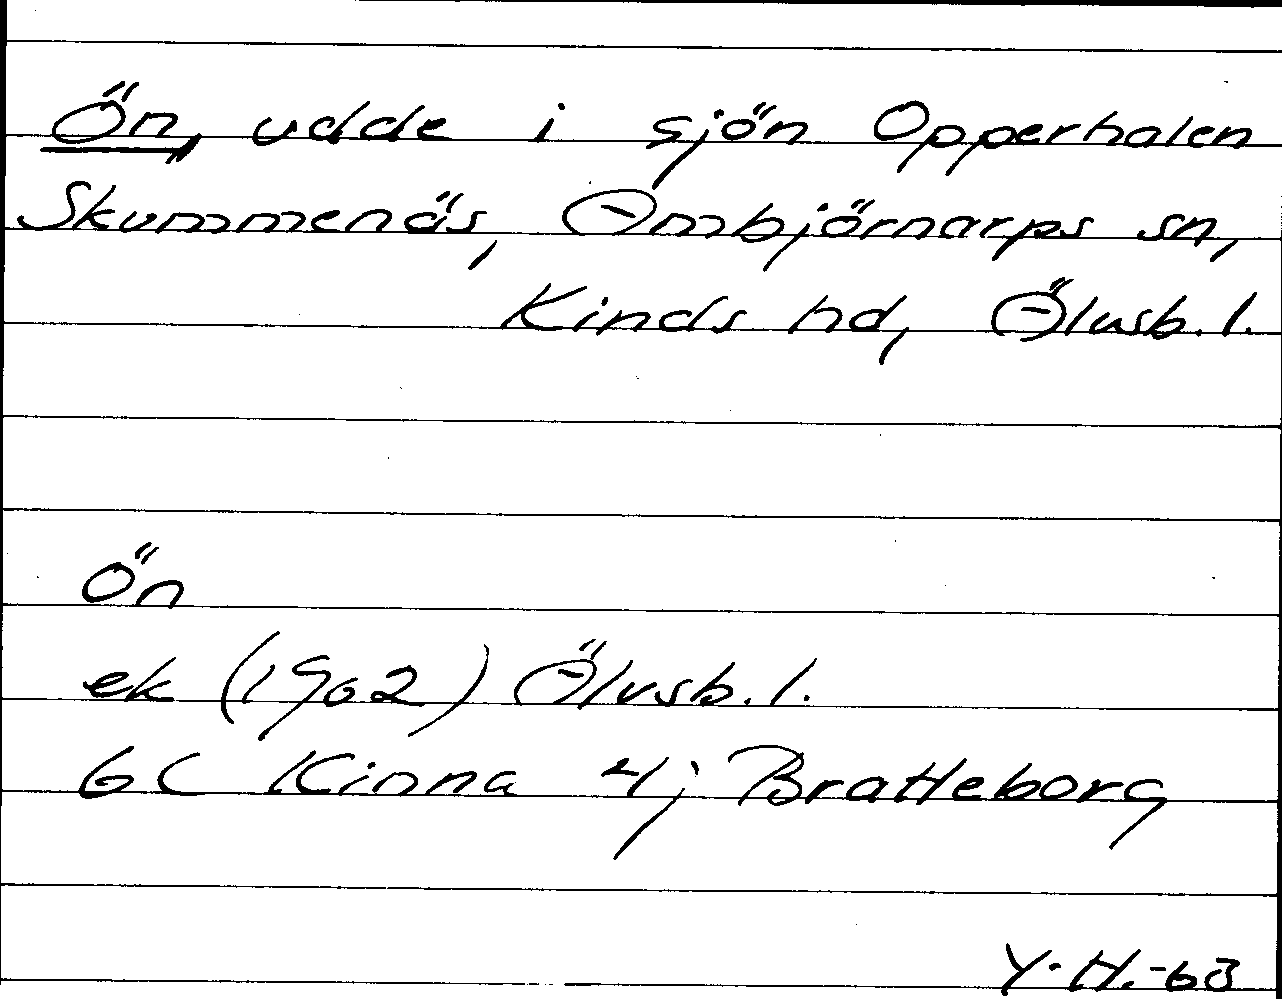 Ön, udde i sjön Opperhalen
Skummenäs, Ambjörnarps sn,
Kinds hd, Älvsb. l.
Ön
ek (1902) Älvsb. l.
6C Kinna 4j Bratteborg
Y.H.-63